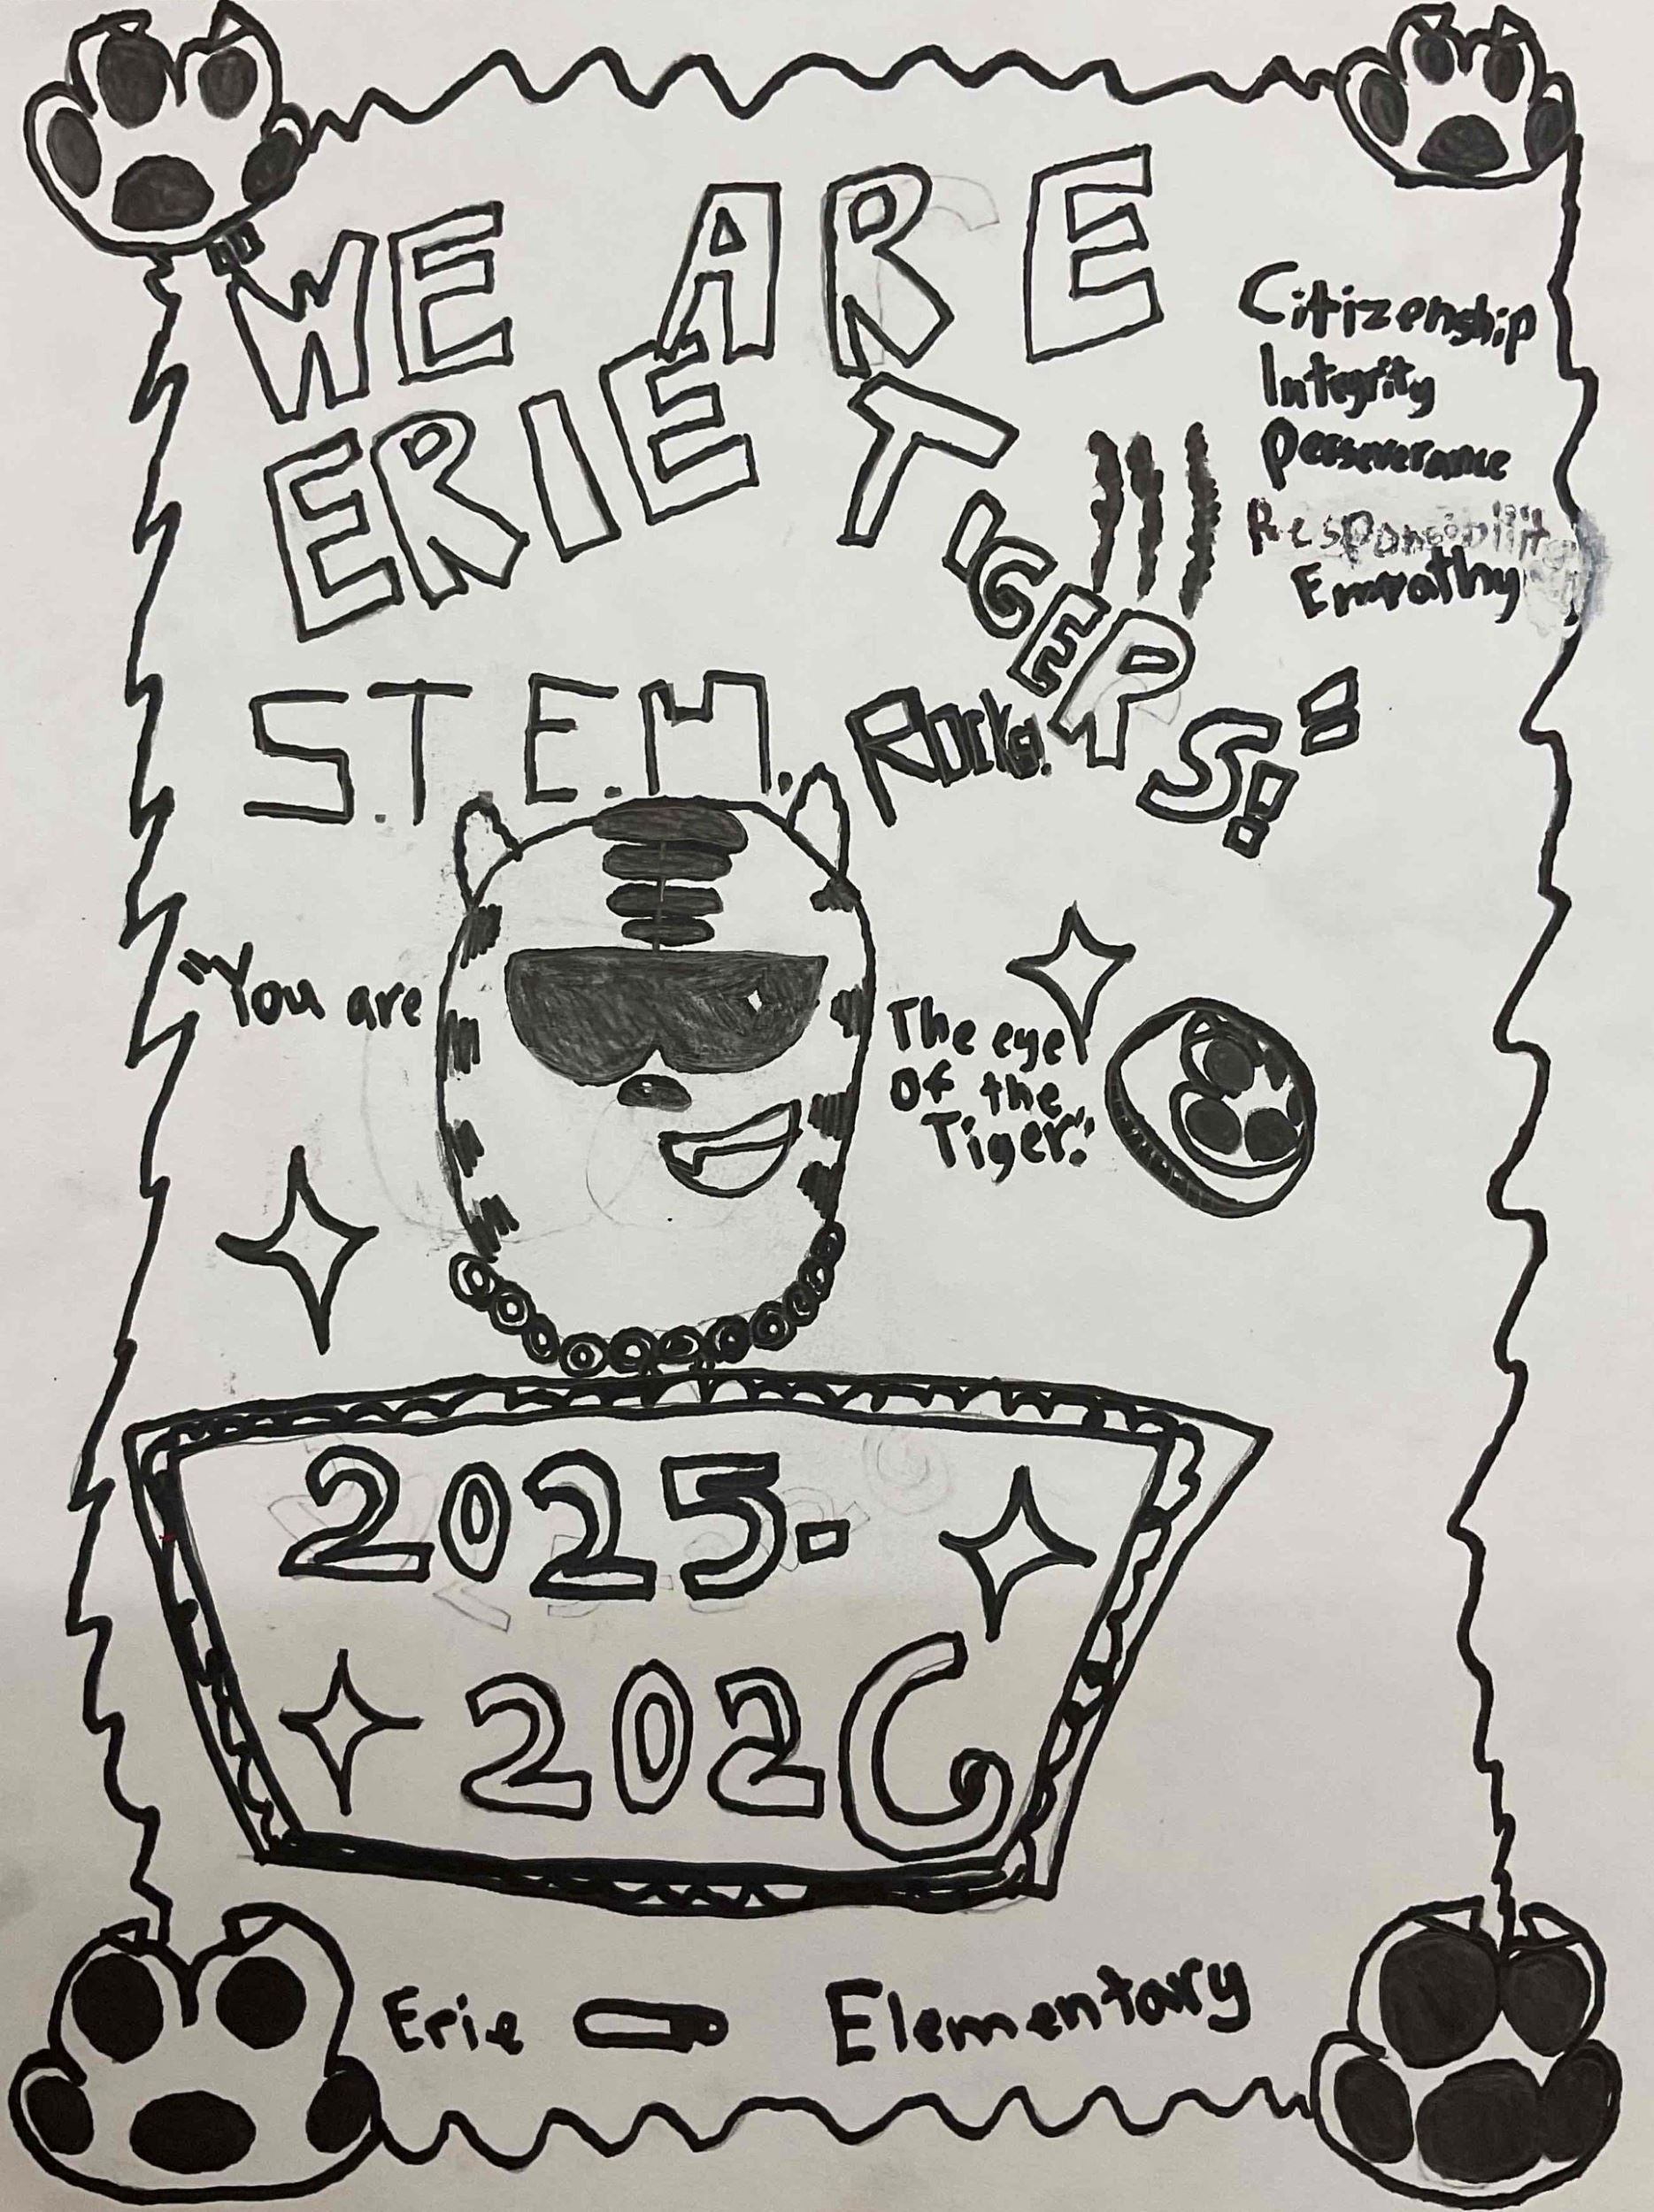 WE ARE
ERIE TIGERS!"
Citizenship
Integrity
Perseverance
Responsibility
Empathy
S.T.E.M. Rocks!
"You are
The eye
Of the
Tiger."
2025-
2026
Erie - Elementary